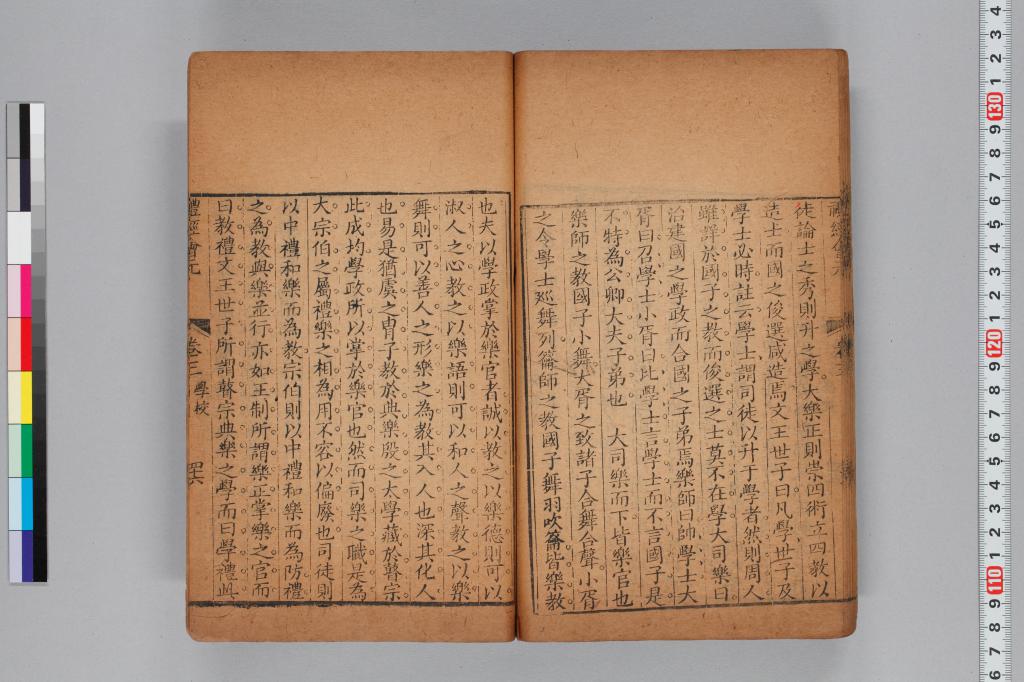 徒論士之秀則升之學大樂正則崇四術立四教以
造士而國之俊選咸造焉文王世子曰凡學世子及
學士必時註云學士謂司徒以升于學者然則周人
雖詳於國子之教而俊選之士莫不在學大司樂曰
治建國之學政而合國之子弟焉樂師曰帥學士大
胥曰召學士小胥曰比學士言學士而不言國子是
不特為公卿大夫子弟也 大司樂而下皆樂官也
樂師之教國子小舞大胥之致諸子合舞合聲小胥
之令學士巡舞列籥師之教國子舞羽吹籥皆樂教
也夫以學政掌於樂官者誠以教之以樂德則可以
淑人之心教之以樂語則可以和人之聲教之以樂
舞則可以善人之形樂之為教其入人也深其化人
也易是猶虞之胄子教於典樂殷之太學藏於瞽宗
此成均學政所以掌於樂官也然而司樂之職是為
大宗伯之屬禮樂之相為用不容以偏廢也司徒則
以中禮和樂而為教宗伯則以中禮和樂而為防禮
之為教與樂並行亦如王制所謂樂正掌樂之官而
曰教禮文王世子所謂瞽宗典樂之學而曰學禮此
禮經會元 卷三 學校 四六